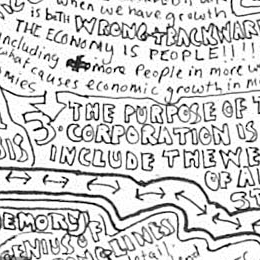 when we have growth
is both WRONG + BACKWARD
THE ECONOMY IS PEOPLE!!!!
including more people in more w
what causes economic growth in m
mies
THE PURPOSE OF T
3. CORPORATION IS
INCLUDE THE WE
SIS
OF A
ST
EMORY OF
GENIUS
LINES
detail and